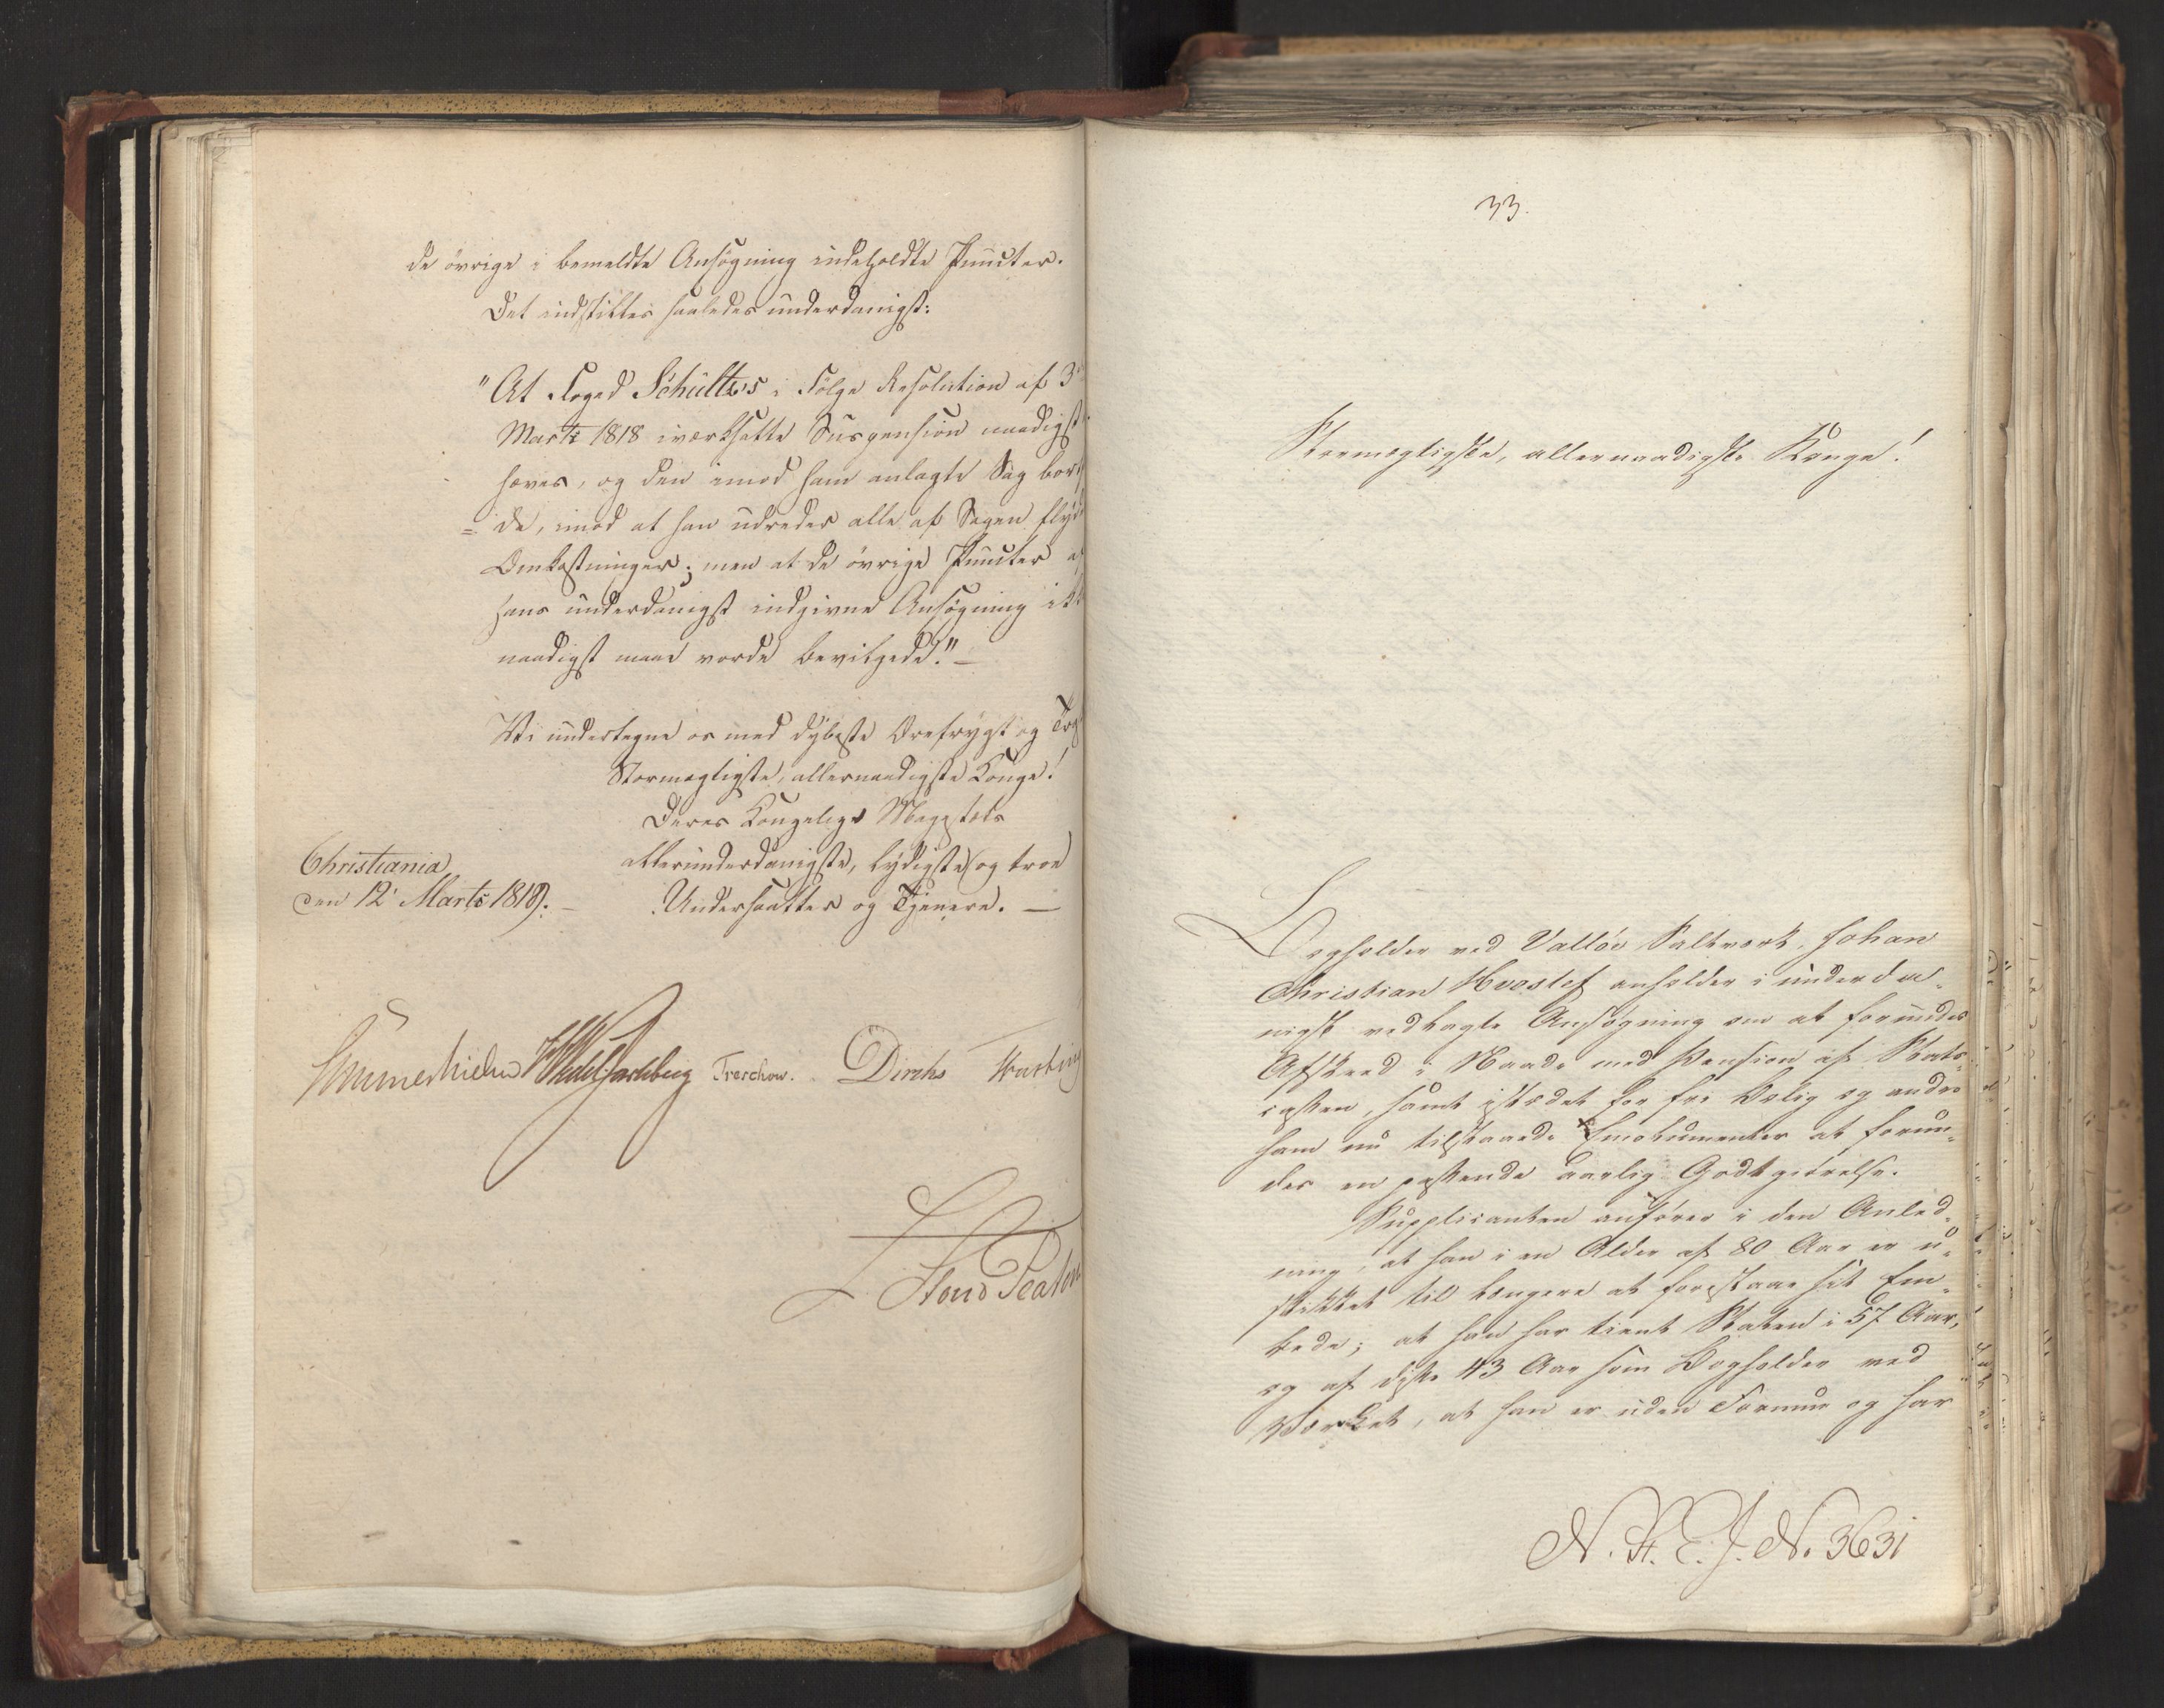 de övrige i bemeldte Ansøgning indeholdte Puncter.
Det indstilles saaledes underdanigst:
"At Foged Schultz's i Følge Resolution af 3
Marts 1818 iværksatte Suspension naadigst
hæves, og den imod ham anlagte Sag bort
= de, imod at han udreder alle af Sagen flyd
Omkostninger; men at de övrige Puncter a
hans underdanigst indgivne Ansøgning ikk
naadigst maae vorde bevilgede." —
Vi undertegne os med dybeste Ærefrygt og
Stormægtigste, allernaadigste Konge!
Deres Kongelige Majestæts
allerunderdanigste, lydigste og troe
Christiania
den 12 Marts 1819. —
Undersaatter og Tjenere. —
Sommerhielm Wedel Jarlsberg Treschow. Diriks
33.
Stormægtigste, allernaadigste Konge!
Bogholder ved Valløe Saltværk, Johan
Christian Hvoslef anholder i underda-
nigst vedlagte Ansøgning om at forundes
Afskeed i Naade med Pension af Stats-
cassen, samt istedet for fri Bolig og andre
ham nu tilstaaede Emolumenter at forun-
des en passende aarlig Godtgiörelse.
Supplicanten anförer i den Anled-
ning, at han i en Alder af 80 Aar er u-
skikket til længere at forestaae sit Em-
bede; at han har tient Staten i 57 Aar,
og af disse 43 Aar som Bogholder ved
Værket, at han er uden Formue og har
N. R. E. J. N. 3631